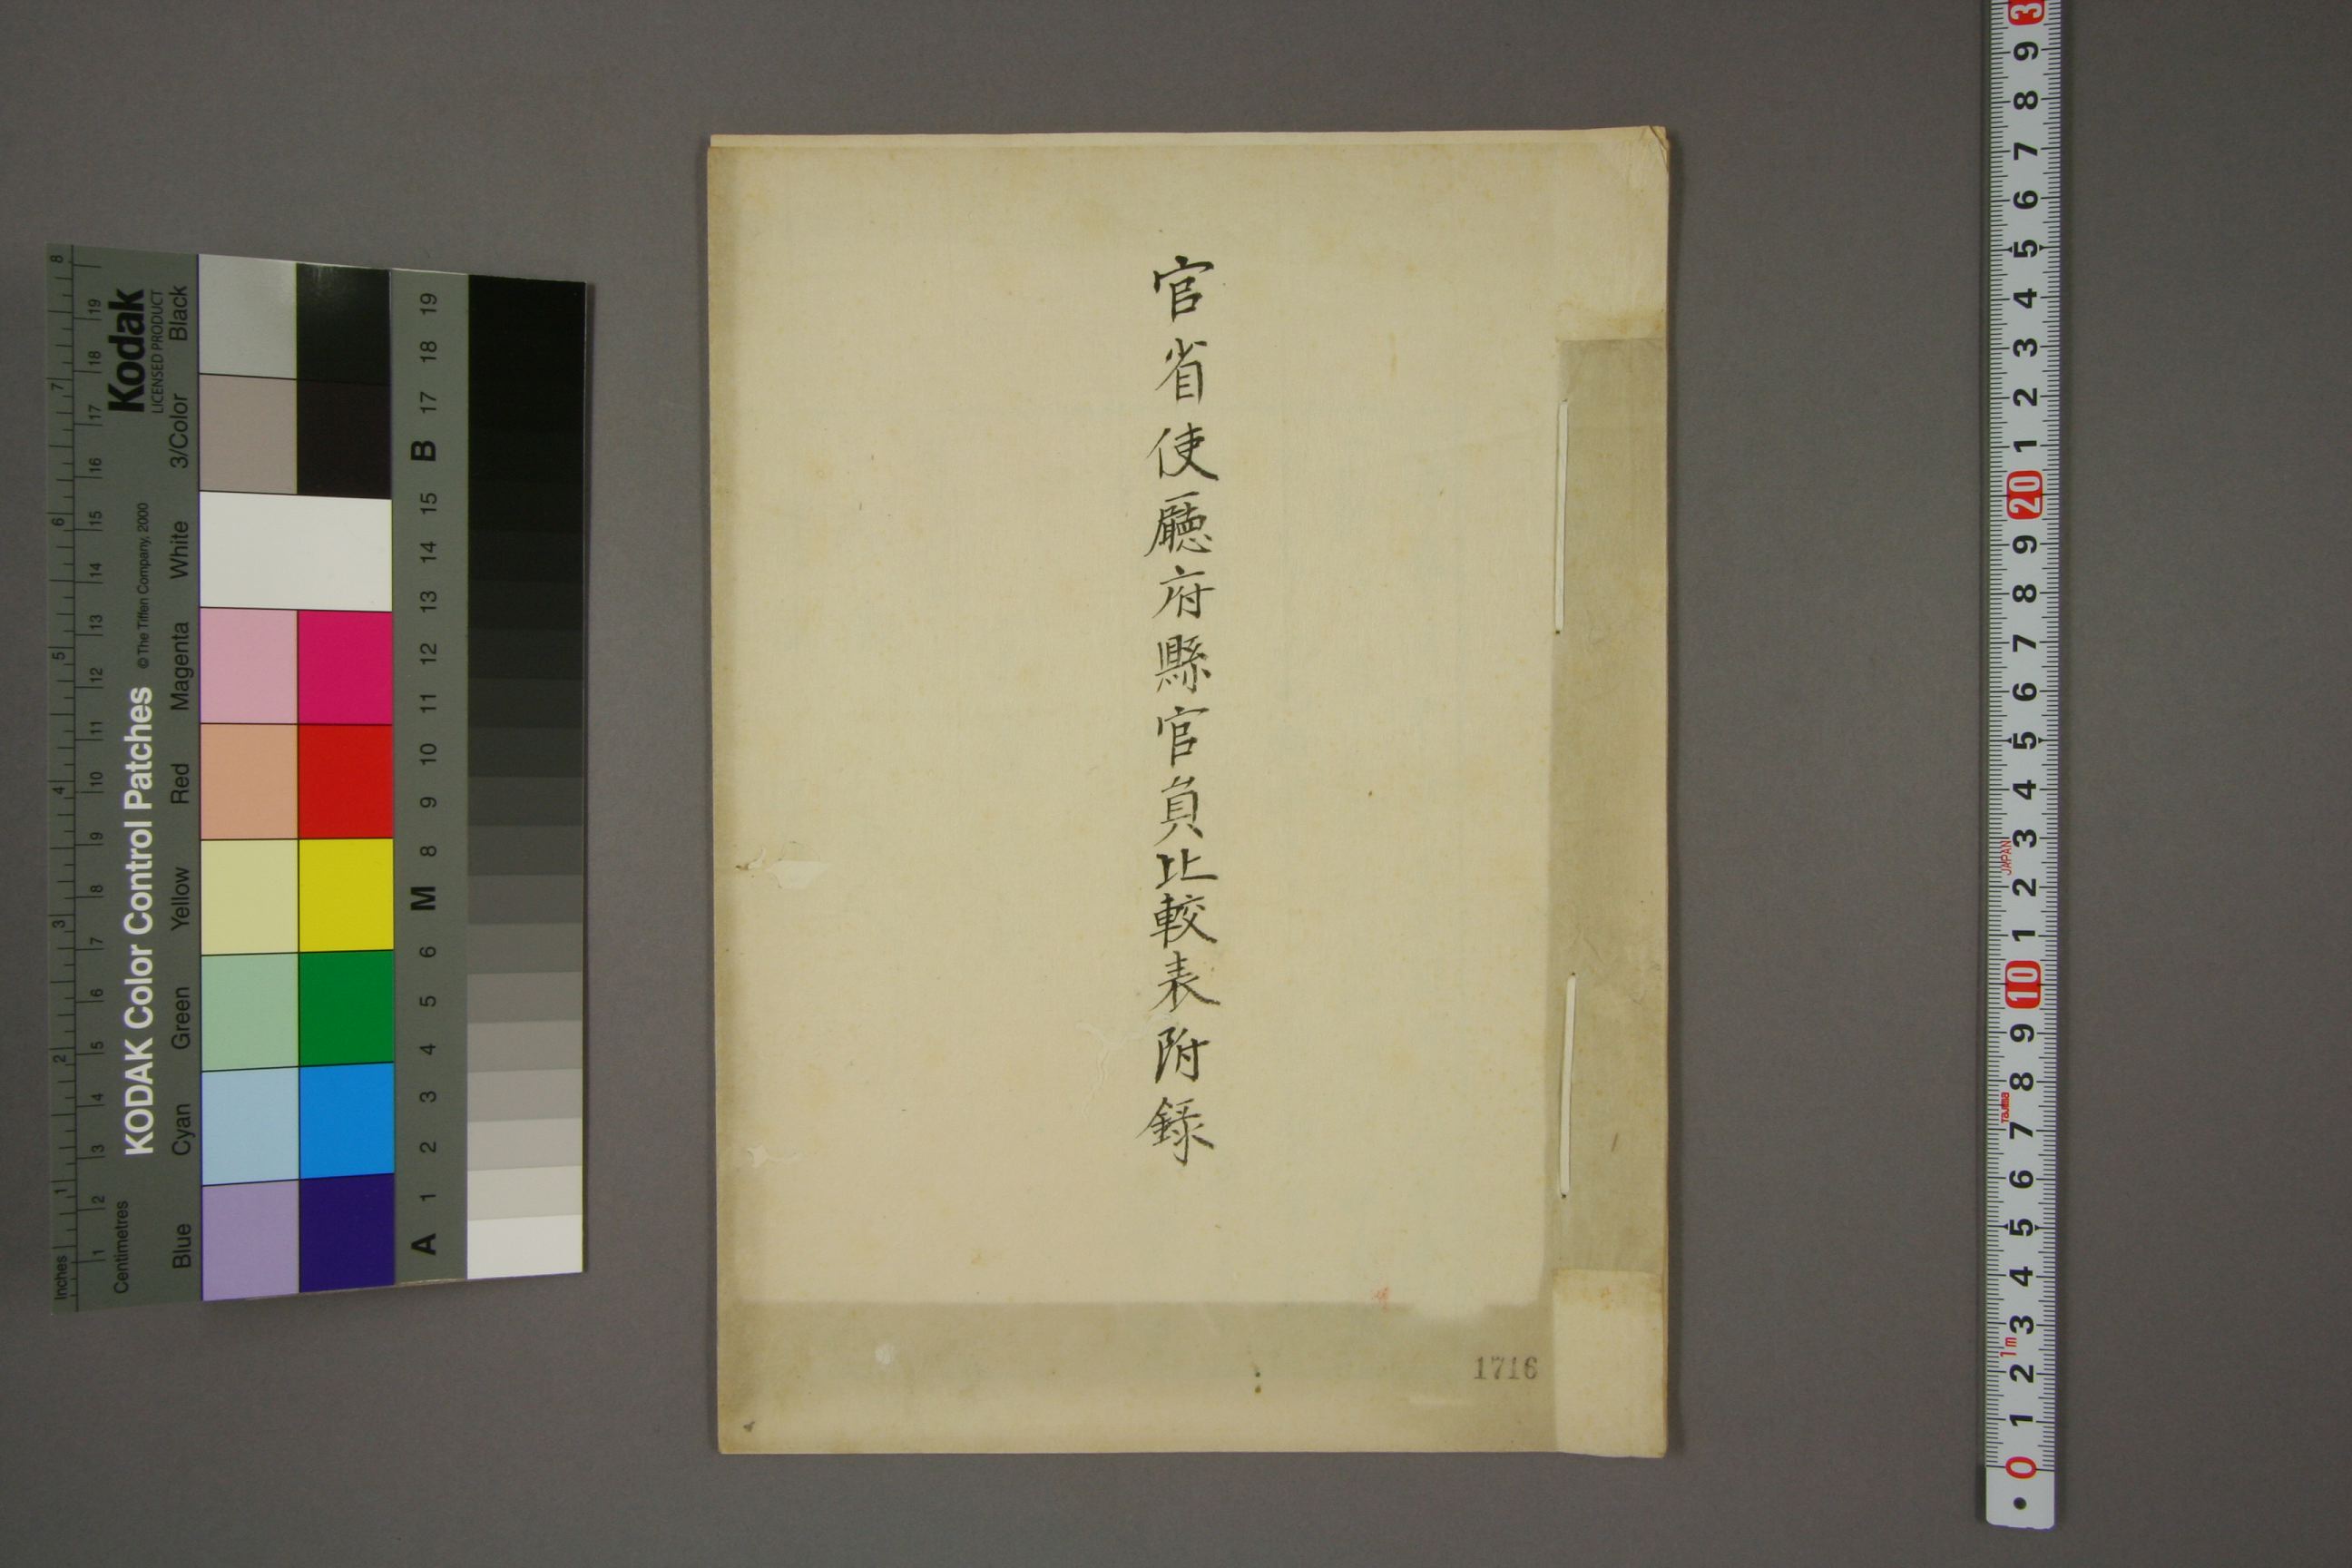 官省使廳府縣官員比較表附録
1716
KODAK Color Control Patches
© The Tiffen Company, 2000
Kodak
LICENSED PRODUCT
Inches
1 2 3 4 5 6 7 8
Centimetres
1 2 3 4 5 6 7 8 9 10 11 12 13 14 15 16 17 18 19
Blue Cyan Green Yellow Red Magenta White 3/Color Black
A 1 2 3 4 5 6 M 8 9 10 11 12 13 14 15 B 17 18 19
3
9
8
7
6
5
4
3
2
1
20
9
8
7
6
5
4
3
JAPAN
2
1
10
9
8
Tajima
7
6
5
4
3
1m
2
1
0